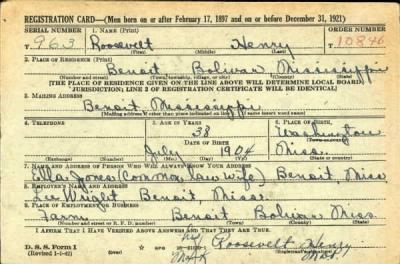 REGISTRATION CARD—(Men born on or after February 17, 1897 and on or before December 31, 1921)
SERIAL NUMBER 1. NAME (Print) ORDER NUMBER
T 963 Roosevelt Henry 10846
(First) (Middle) (Last)
2. PLACE OF RESIDENCE (Print)
Benoit Bolivar Mississippi
(Number and street) (Town, township, village, or city) (County) (State)
[THE PLACE OF RESIDENCE GIVEN ON THE LINE ABOVE WILL DETERMINE LOCAL BOARD
JURISDICTION; LINE 2 OF REGISTRATION CERTIFICATE WILL BE IDENTICAL]
3. MAILING ADDRESS
Benoit Mississippi
[Mailing address if other than place indicated on line 2.
4. TELEPHONE 5. AGE IN YEARS 6. PLACE OF BIRTH
38 Washington
DATE OF BIRTH (Town or county)
July 1904 Miss.
(Exchange) (Number) (Mo.) (Day) (Yr.) (State or country)
7. NAME AND ADDRESS OF PERSON WHO WILL ALWAYS KNOW YOUR ADDRESS
Ella Jones (common law wife) Benoit Miss
8. EMPLOYER'S NAME AND ADDRESS
Lee Wright Benoit Miss.
9. PLACE OF EMPLOYMENT OR BUSINESS
Farm Benoit Bolivar Miss.
(Number and street or R. F. D. number) (Town) (County) (State)
I AFFIRM THAT I HAVE VERIFIED ABOVE ANSWERS AND THAT THEY ARE TRUE.
D. S. S. Form 1 Roosevelt Henry
(Revised 1-1-42) Mark